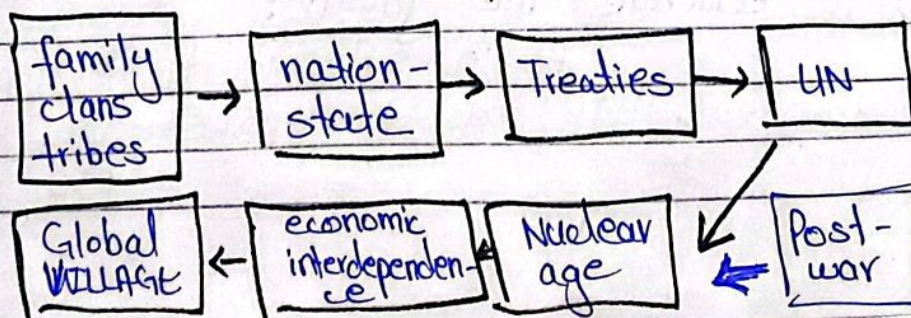 family
clans
tribes
nation-
state
Treaties
UN
Global
VILLAGE
economic
interdependen-
ce
Nuclear
age
Post-
war